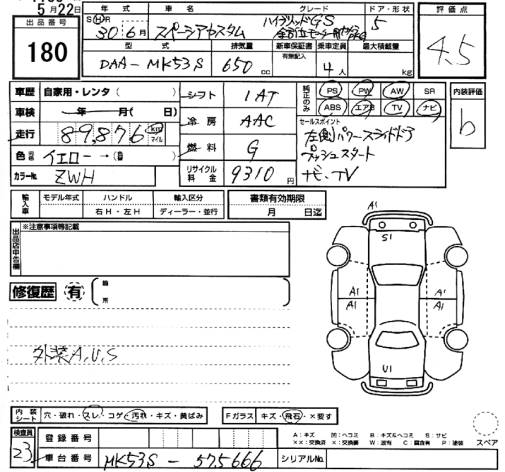 5月22日
出品番号
180
年式 車名 グレード ドア・形状
S H R 30年6月 スペーシアカスタム ハイブリッドGS 5
型式 排気量 新車保証書 乗車定員 最大積載量
有無記入
DAA-MK53S 650cc 4人 kg
評価点
4.5
車歴 自家用・レンタ( )
車検 年 月( 日)
走行 89,876 km マイル
色 イエロー→
カラーNo. ZWH
シフト 1AT
冷房 AAC
燃料 G
リサイクル料金 9310円
純正のみ PS PW AW SR
ABS エアB TV ナビ
セールスポイント
左側パワースライドドア
プッシュスタート
ナビ、TV
内装評価
b
輸入車 モデル年式 ハンドル 輸入区分
右H・左H ディーラー・並行
書類有効期限
月 日迄
出品店申告欄 ※注意事項等記載
修復歴 有 箇所
外装A,U,S
A1
S1
A1 A1
A1 A1
U1
内装シート 穴・破れ・スレ・コゲ・汚れ・キズ・黄ばみ
Fガラス キズ・飛石・×要す
A：キズ U：ヘコミ B：キズ&ヘコミ S：サビ
××：交換済 ×：要交換 W：波有 C：腐食有 P：塗装
スペア
検査員
23
登録番号
車台番号 MK53S-525666 シリアルNo.